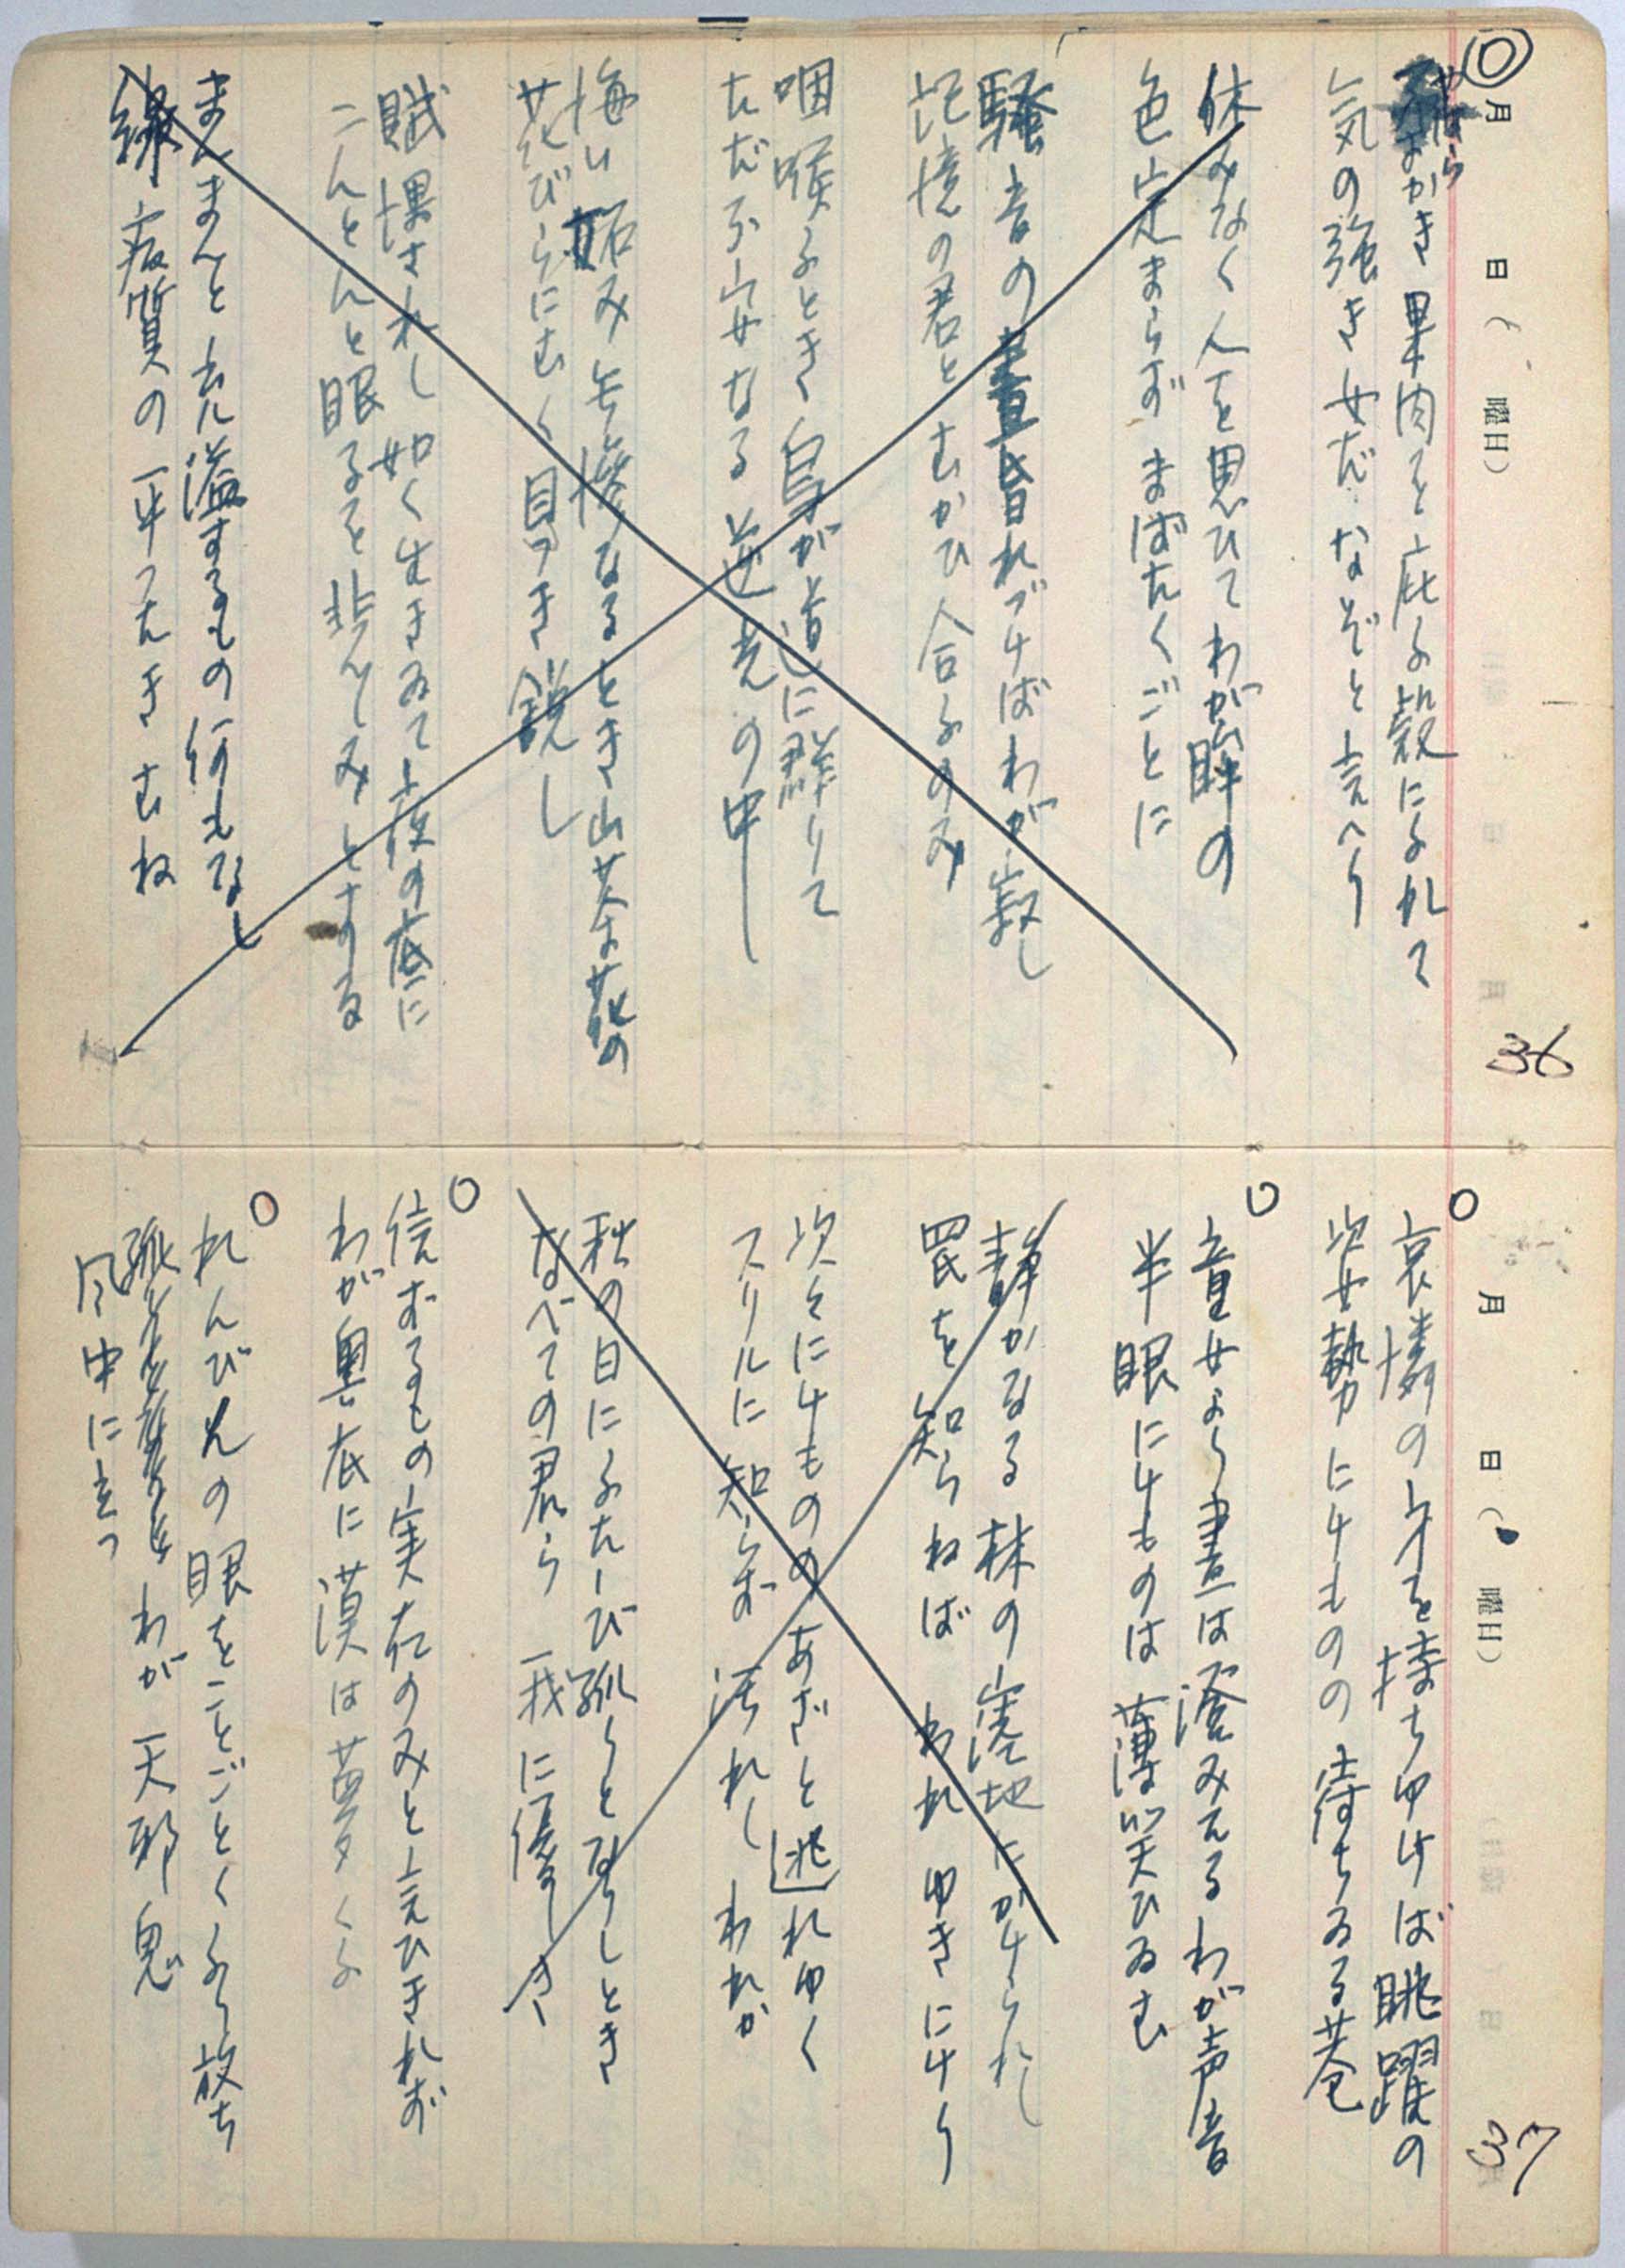 月 日( 曜日)
36
やはらかき果肉を庇ふ殻によれて
気の強き女だなぞと言へり
休みなく人を思ひてわが眸の
色定まらずまばたくごとに
騒音の昼昏れゆけばわが寂し
記憶の君とむかひ合ふのみ
咽喉ふとき鳥が道に群りて
ただ不安なる逆光の中
悔い妬み無惨なるとき山茶花の
花びらにむく目つき鋭し
賦課されし如く生きゐて夜の底に
こんとんと眼るを悲しみとする
まんまんと充溢するもの何もなし
線病質の平つたきむね
月 日( 曜日)
37
哀憐の身を持ちゆけば跳躍の
姿勢にけものの待ちゐる巷
童女より昼は澄みゐるわが声音
半眼にけものは薄笑ひゐむ
静かなる林の窪地にかけられし
罠を知らねば われ ゆきにけり
次々にけものの あざと逃れゆく
スリルに知らず 汚れし われか
秋の日にふたたび孤りとなりしとき
なべての君ら 我に優しき
信ずるもの実在のみと言ひきれず
わが奥底に漠は夢くふ
れんびんの眼をことごとくふり放ち
わが 天邪鬼
風中に立つ